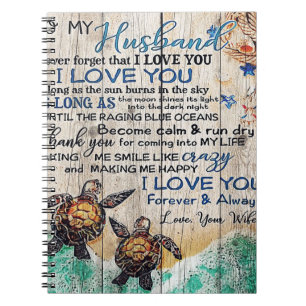 MY
Husband
ver forget that I LOVE YOU
I LOVE YOU
long as the sun burns in the sky
LONG AS the moon shines its light
into the dark night
NTIL THE RAGING BLUE OCEANS
Become calm & run dry
hank you for coming into MY LIFE
KING ME SMILE LIKE crazy
and MAKING ME HAPPY
I LOVE YOU
Forever & Alway
Love, Your Wife